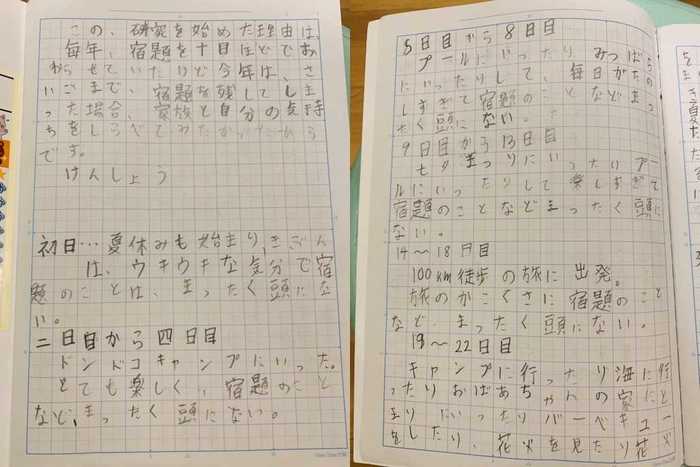 この、研究を始めた理由は、
毎年、宿題を十日ほどでお
わらせていたりど今年は、さ
いごまで、宿題を残してしま
った場合、家族と自分の気持
ちをしらべてみたかったから
です。
けんしょう
初日…夏休みも始まり、きごん
は、ウキウキな気分で宿
題のことは、まったく頭にな
い。
二日目から四日目
ドンドコキャンプにいった。
とても楽しく、宿題のこと
など、まったく頭にない。
5日目から8日目
プールにいったり みつばち
にいったりして、毎日がたの
しすぎて宿題のことなどまっ
たく頭にない。
9日目から13日目
七夕まつりにいったりプー
ルにいったりして楽しすぎて
宿題のことなどまったく頭に
ない。
14〜18日目
100km徒歩の旅に出発。
旅のかこくさに宿題のこと
など、まったく頭にない。
19〜22日目
キャンプに行ったり海に行
ったりおばあちゃんの家にと
まりにいったりバーベキュー
をしたり、花火を見たり花火